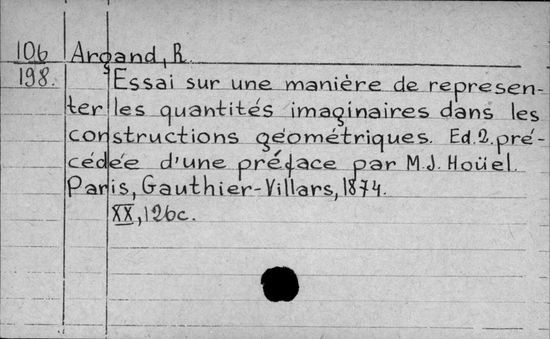 106 Argand, R.
198. Essai sur une manière de represen-
ter les quantités imaginaires dans les
constructions géométriques. Ed. 2. pré-
cédée d'une préface par M. J. Hoüel.
Paris, Gauthier-Villars, 1874.
XX, 126c.